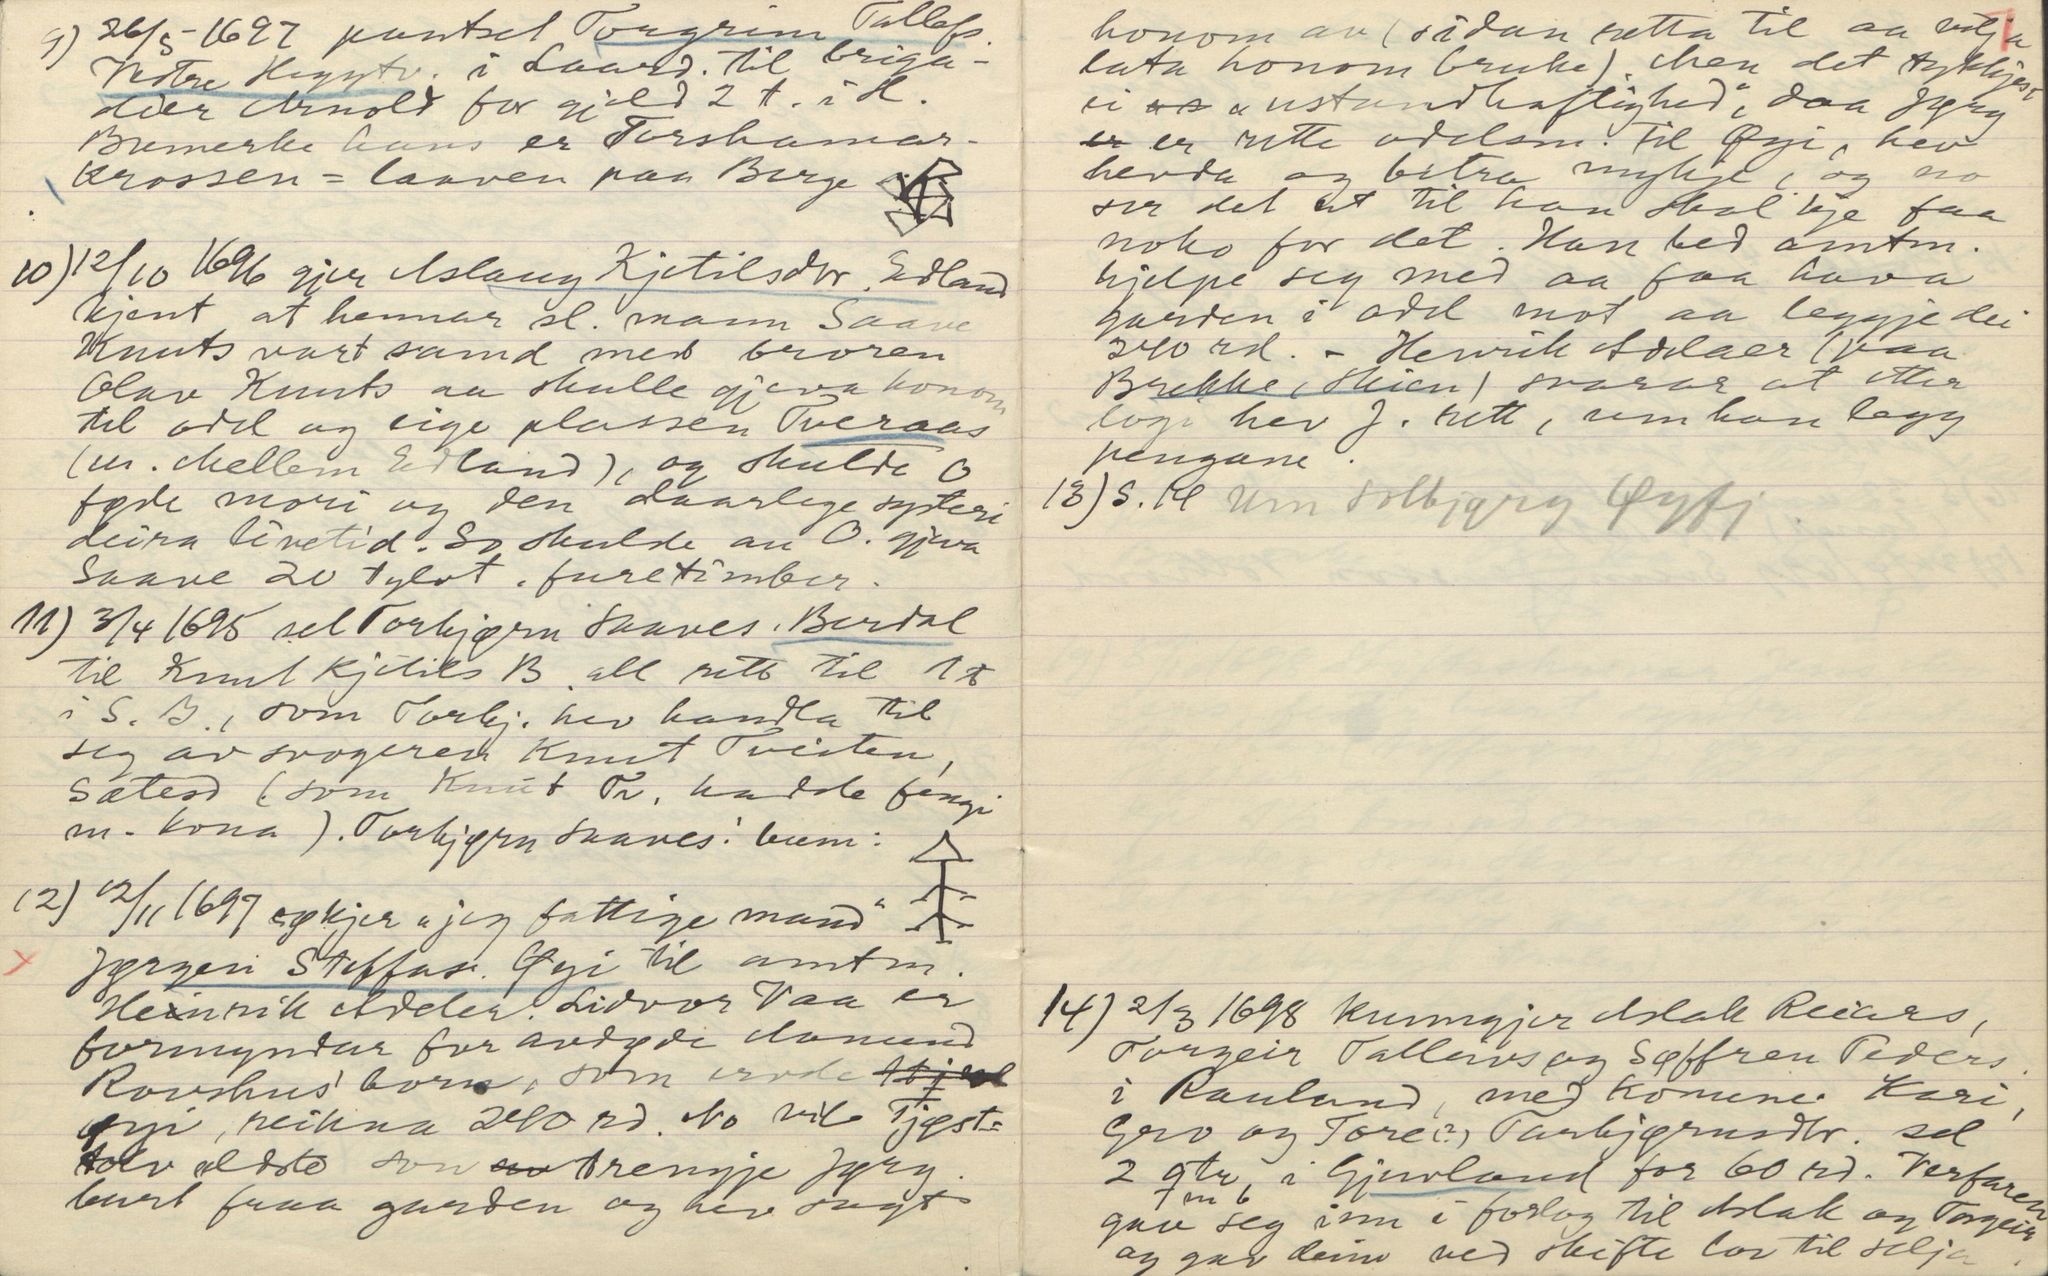 9) 26/5-1697 pantset Tovgrim Tallefs.
Vetre Heggtv. i Laard. til briga-
dier Arnold for gjeld 2 t. i H.
Bumerke hans er Torshamar-
krossen = laaven paa Berge
10) 12/10 1696 gjer Aslaug Kjetilsdtr. Edland
kjent at hennar sl. mann Saave
Knuts vart samd med broren
Olav Knuts aa skulle gjeva honom
til odel og eige plassen Tveraas
(u. Mellem Edland), og skulde O
føde mori og den daarlege systeri
deira livetid. So skulde au O. gjeva
Saave 20 tylvt. furetimber.
11) 3/4 1695 sel Torbjørn Saaves. Berdal
til Knut Kjetils B. all rett til 1 t
i S. B., som Torbj. hev handla til
seg av svogeren Knut Tveiten,
Sætesd (som Knut Tv. hadde fengi
m. kona). Torbjørn Saaves' bum:
12) 12/11 1697 søkjer "jeg fattige mand"
Jørgen Steffas. Øyi til amtm.
Heinrik Adeler. Lidvor Vaa er
formyndar for avdøde Aamund
Rovshus' born, som
øyi, reikna 240 rd. No vil Tjøst-
olv eldste son trengje Jørg.
burt fraa garden og hev sagt
honom au (sidan retta til aa vilja
lata honom bruke). Men det tykkjest
ei "ustandhaftighed", daa Jørg
er rette odelsm. til Øyi, hev
hevda og betra mykje, og no
ser det ut til han skal ikje faa
noko for det. Han bed amtm.
hjelpe seg med aa faa hava
garden i odel mot aa leggje dei
240 rd. - Henrik Adelaer (paa
Brekke, Skien) svarar at etter
logi hev J. rett, um han legg
pengane.
13) S. Kl Um Solbjørg Øyfj.
14) 2/3 1698 kunngjer Aslak Reiars,
Torgeir Tallevs og Søffren Peders.
i Rauland, med konune Kari,
Gro og Tore(?) Tarbjørnsdtr. sel
2 gtr. i Gjuvland for 60 rd. Verfaren
gav seg inn i forlog til Aslak og Torgeir
og gav deim ved skifte lov til selja.